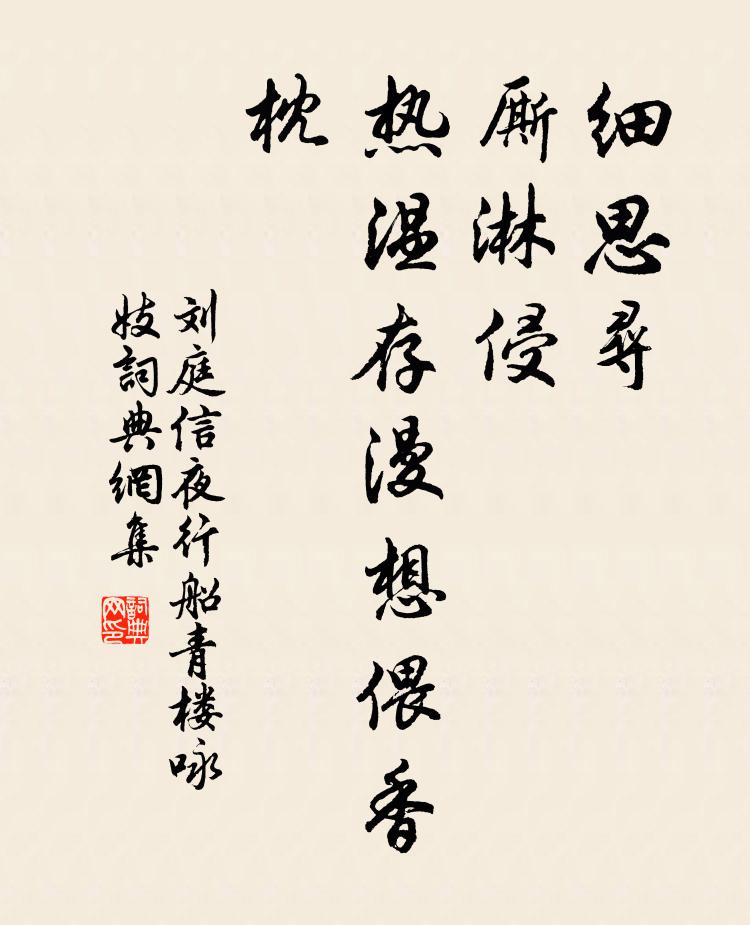 细思寻
厮淋侵
热温存漫想偎香
枕
刘庭信夜行船青楼咏
妓詞典網集
詞典网印